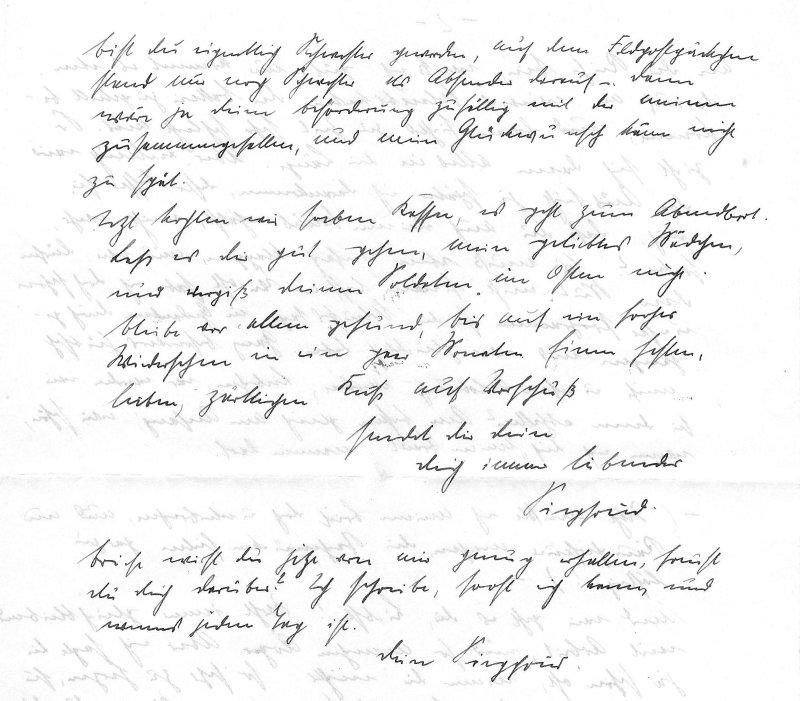 bist du eigentlich Schwester geworden, auf dem Feldpostpäckchen
stand nur noch Schwester als Absender darauf u. dann
wäre ja deine Beförderung zufällig mit der meinen
zusammengefallen, und mein Glückwunsch käme nicht
zu spät.
Jetzt kochten wir soeben Kaffee, es geht zum Abendbrot.
Laß es dir gut gehen, mein geliebtes Mädchen,
und vergiß deinen Soldaten im Osten nicht.
bleibe vor allem gesund, bis auf ein frohes
Wiedersehen in ein paar Monaten. Einen festen,
lieben, zärtlichen Kuß auf Vorschuß
sendet dir dein
dich immer liebender
Siegfried.
briefe wirst du jetzt von mir genug erhalten, freust
du dich darüber? Ich schreibe, sooft ich kann, und
wenns jeden Tag ist.
dein Siegfried.